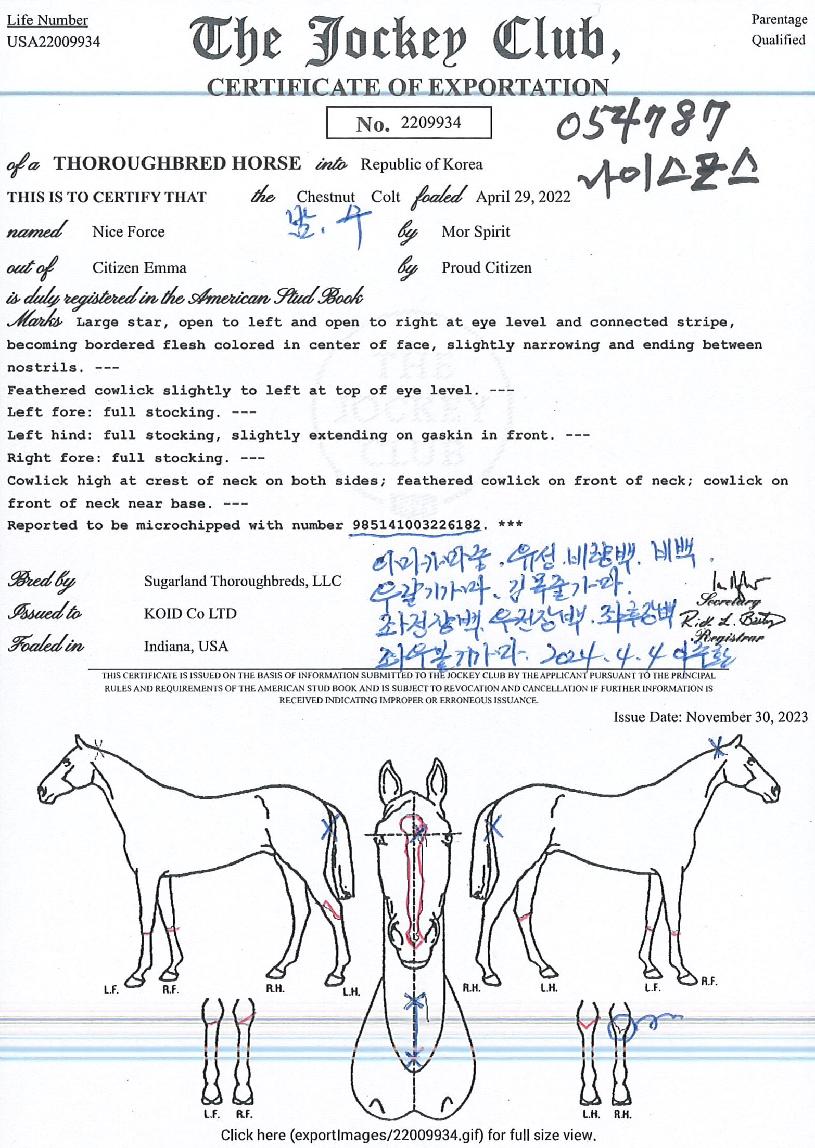 Life Number
USA22009934
Parentage
Qualified
The Jockey Club,
CERTIFICATE OF EXPORTATION
No. 2209934
054787
나이스포스
of a THOROUGHBRED HORSE into Republic of Korea
THIS IS TO CERTIFY THAT the Chestnut Colt foaled April 29, 2022
named Nice Force by Mor Spirit
out of Citizen Emma by Proud Citizen
is duly registered in the American Stud Book
Marks Large star, open to left and open to right at eye level and connected stripe,
becoming bordered flesh colored in center of face, slightly narrowing and ending between
nostrils. ---
Feathered cowlick slightly to left at top of eye level. ---
Left fore: full stocking. ---
Left hind: full stocking, slightly extending on gaskin in front. ---
Right fore: full stocking. ---
Cowlick high at crest of neck on both sides; feathered cowlick on front of neck; cowlick on
front of neck near base. ---
Reported to be microchipped with number 985141003226182. ***
THE JOCKEY CLUB
Bred by Sugarland Thoroughbreds, LLC
Issued to KOID Co LTD
Foaled in Indiana, USA
유성 비량백. 비백.
좌전장백 우전장백. 좌후장백
2024. 4. 4
Secretary
Registrar
THIS CERTIFICATE IS ISSUED ON THE BASIS OF INFORMATION SUBMITTED TO THE JOCKEY CLUB BY THE APPLICANT PURSUANT TO THE PRINCIPAL
RULES AND REQUIREMENTS OF THE AMERICAN STUD BOOK AND IS SUBJECT TO REVOCATION AND CANCELLATION IF FURTHER INFORMATION IS
RECEIVED INDICATING IMPROPER OR ERRONEOUS ISSUANCE.
Issue Date: November 30, 2023
L.F. R.F. R.H. L.H. R.H. L.H. L.F. R.F.
L.F. R.F. L.H. R.H.
Click here (exportImages/22009934.gif) for full size view.